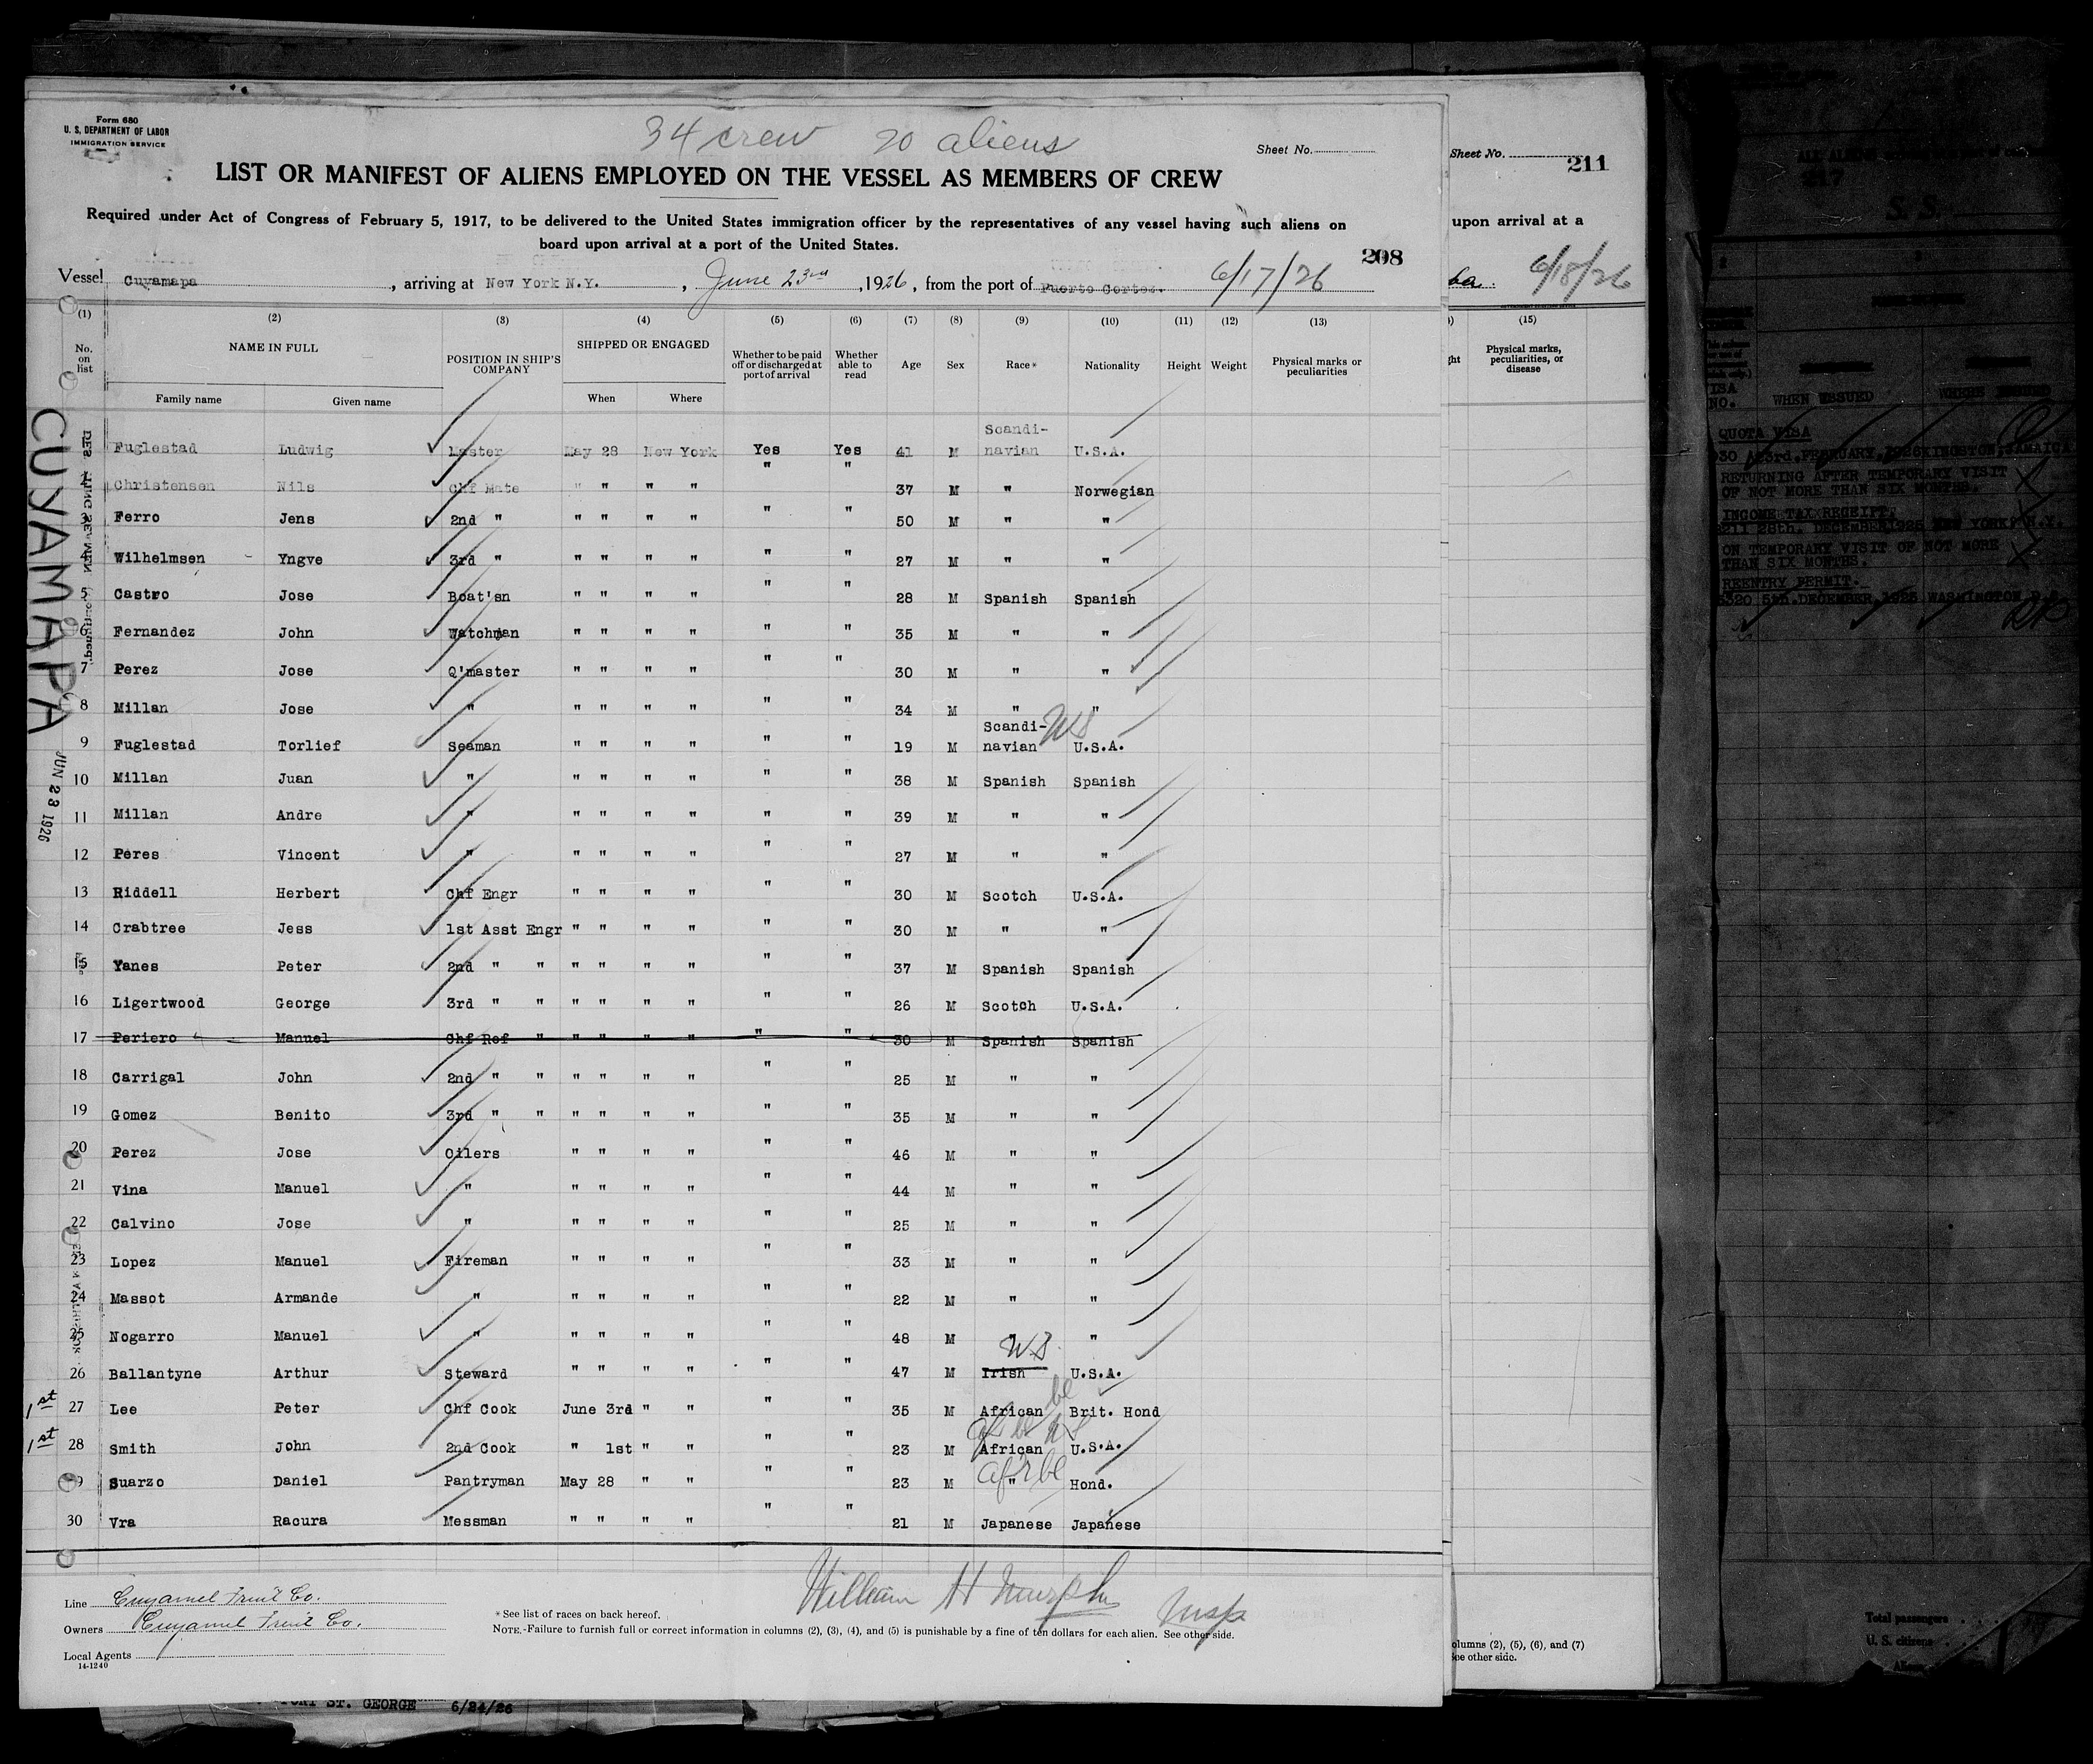 Form 680
U. S. DEPARTMENT OF LABOR
IMMIGRATION SERVICE
34 crew 20 aliens
Sheet No.
LIST OR MANIFEST OF ALIENS EMPLOYED ON THE VESSEL AS MEMBERS OF CREW
Required under Act of Congress of February 5, 1917, to be delivered to the United States immigration officer by the representatives of any vessel having such aliens on
board upon arrival at a port of the United States.
208
Vessel Cuyamapa, arriving at New York N.Y., June 23rd, 1926, from the port of Puerto Cortez. 6/17/26
(1) (2) (3) (4) (5) (6) (7) (8) (9) (10) (11) (12) (13)
No. on list NAME IN FULL POSITION IN SHIP'S COMPANY SHIPPED OR ENGAGED Whether to be paid off or discharged at port of arrival Whether able to read Age Sex Race* Nationality Height Weight Physical marks or peculiarities
Family name Given name When Where
Fuglestad Ludwig Master May 28 New York Yes Yes 41 M Scandi-navian U.S.A.
2 Christensen Nils Chf Mate " " " " " " 37 M " Norwegian
3 Ferro Jens 2nd " " " " " " " 50 M " "
4 Wilhelmsen Yngve 3rd " " " " " " " 27 M " "
5 Castro Jose Boat'sn " " " " " " 28 M Spanish Spanish
6 Fernandez John Watchman " " " " " " 35 M " "
7 Perez Jose Q'master " " " " " " 30 M " "
8 Millan Jose " " " " " " " 34 M " "
9 Fuglestad Torlief Seaman " " " " " " 19 M Scandi-navian US U.S.A.
10 Millan Juan " " " " " " " 38 M Spanish Spanish
11 Millan Andre " " " " " " " 39 M " "
12 Peres Vincent " " " " " " " 27 M " "
13 Riddell Herbert Chf Engr " " " " " " 30 M Scotch U.S.A.
14 Crabtree Jess 1st Asst Engr " " " " " " 30 M " "
15 Yanes Peter 2nd " " " " " " " " 37 M Spanish Spanish
16 Ligertwood George 3rd " " " " " " " " 26 M Scotch U.S.A.
17 Periero Manuel Chf Ref " " " " " " " 30 M Spanish Spanish
18 Carrigal John 2nd " " " " " " " " 25 M " "
19 Gomez Benito 3rd " " " " " " " " 35 M " "
20 Perez Jose Oilers " " " " " " 46 M " "
21 Vina Manuel " " " " " " " 44 M " "
22 Calvino Jose " " " " " " " 25 M " "
23 Lopez Manuel Fireman " " " " " " 33 M " "
24 Massot Armande " " " " " " " 22 M " "
25 Nogarro Manuel " " " " " " " 48 M " "
26 Ballantyne Arthur Steward " " " " " " 47 M Irish U.S. U.S.A.
1st 27 Lee Peter Chf Cook June 3rd " " " " 35 M African Brit. Hond
1st 28 Smith John 2nd Cook " 1st " " " " 23 M African U.S.A.
29 Suarzo Daniel Pantryman May 28 " " " " 23 M " Hond.
30 Vra Racura Messman " " " " " " 21 M Japanese Japanese
CUYAMAPA
JUN 23 1926
William H Murphy Insp
Line Cuyamel Fruit Co.
Owners Cuyamel Fruit Co.
Local Agents
14-1240
*See list of races on back hereof.
NOTE.-Failure to furnish full or correct information in columns (2), (3), (4), and (5) is punishable by a fine of ten dollars for each alien. See other side.
Sheet No. 211
upon arrival at a
6/18/26
(15)
Physical marks, peculiarities, or disease
columns (2), (5), (6), and (7)
See other side.
ST. GEORGE 6/24/26
217
S. S.
VISA NO. WHEN ISSUED WHERE ISSUED
QUOTA VISA
RETURNING AFTER TEMPORARY VISIT
OF NOT MORE THAN SIX MONTHS.
INCOME TAX RECEIPT.
28th. DECEMBER 1925 NEW YORK, N.Y.
ON TEMPORARY VISIT OF NOT MORE
THAN SIX MONTHS.
REENTRY PERMIT.
5th. DECEMBER 1925 WASHINGTON
Total passengers
U. S. citizens